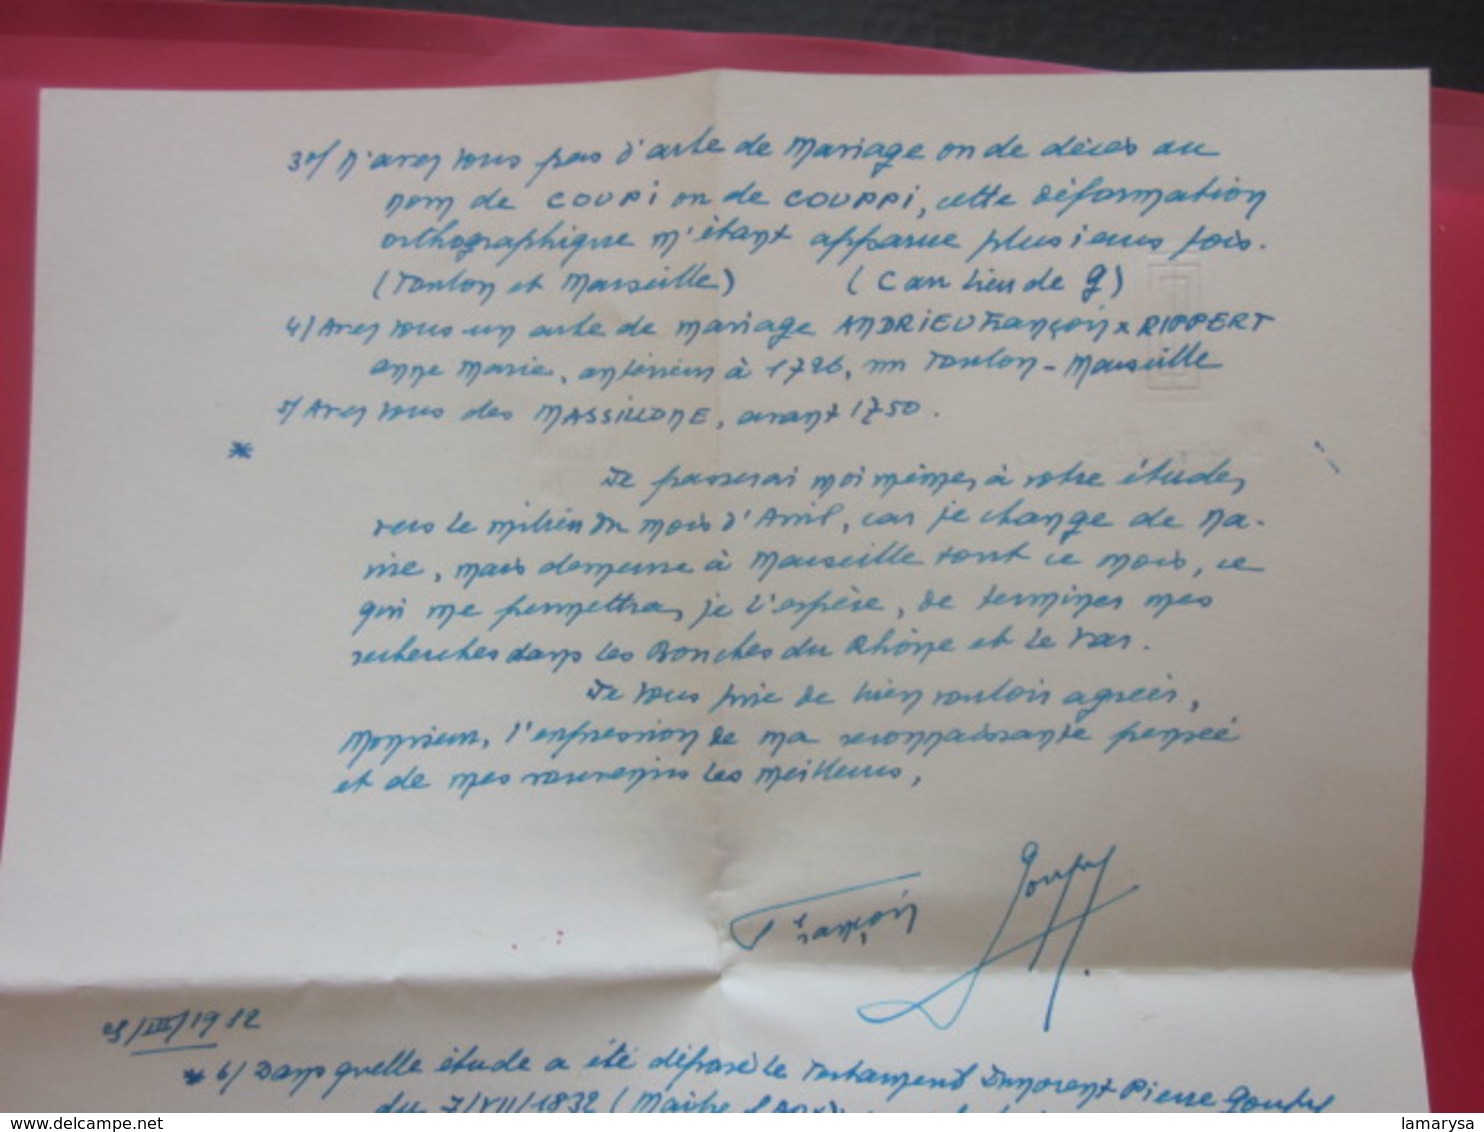 3°/ N'avez vous pas d'acte de mariage ou de décès au
nom de COUPI ou de COUPPI, cette déformation
orthographique m'étant apparue plusieurs fois.
(Toulon et Marseille) (C au lieu de G)
4/ Avez vous un acte de mariage ANDRIEU François x RIPPERT
anne Marie, antérieur à 1726, sur Toulon - Marseille
5/ Avez vous des MASSILLONE, avant 1750.
*
Je passerai moi même, à votre étude,
vers le milieu du mois d'Avril, car je change de na-
vire, mais demeure à Marseille tout ce mois, ce
qui me permettra, je l'espère, de terminer mes
recherches dans les Bouches du Rhône et le Var.
Je vous prie de bien vouloir agréer,
Monsieur, l'expression de ma reconnaissante pensée
et de mes souvenirs les meilleurs,
François Goupy
/III/1912
* 6/ Dans quelle étude a été déposé le Testament Innocent Pierre Goupy
du 7/VII/1832 (Maître
lamarysa
delcampe.net